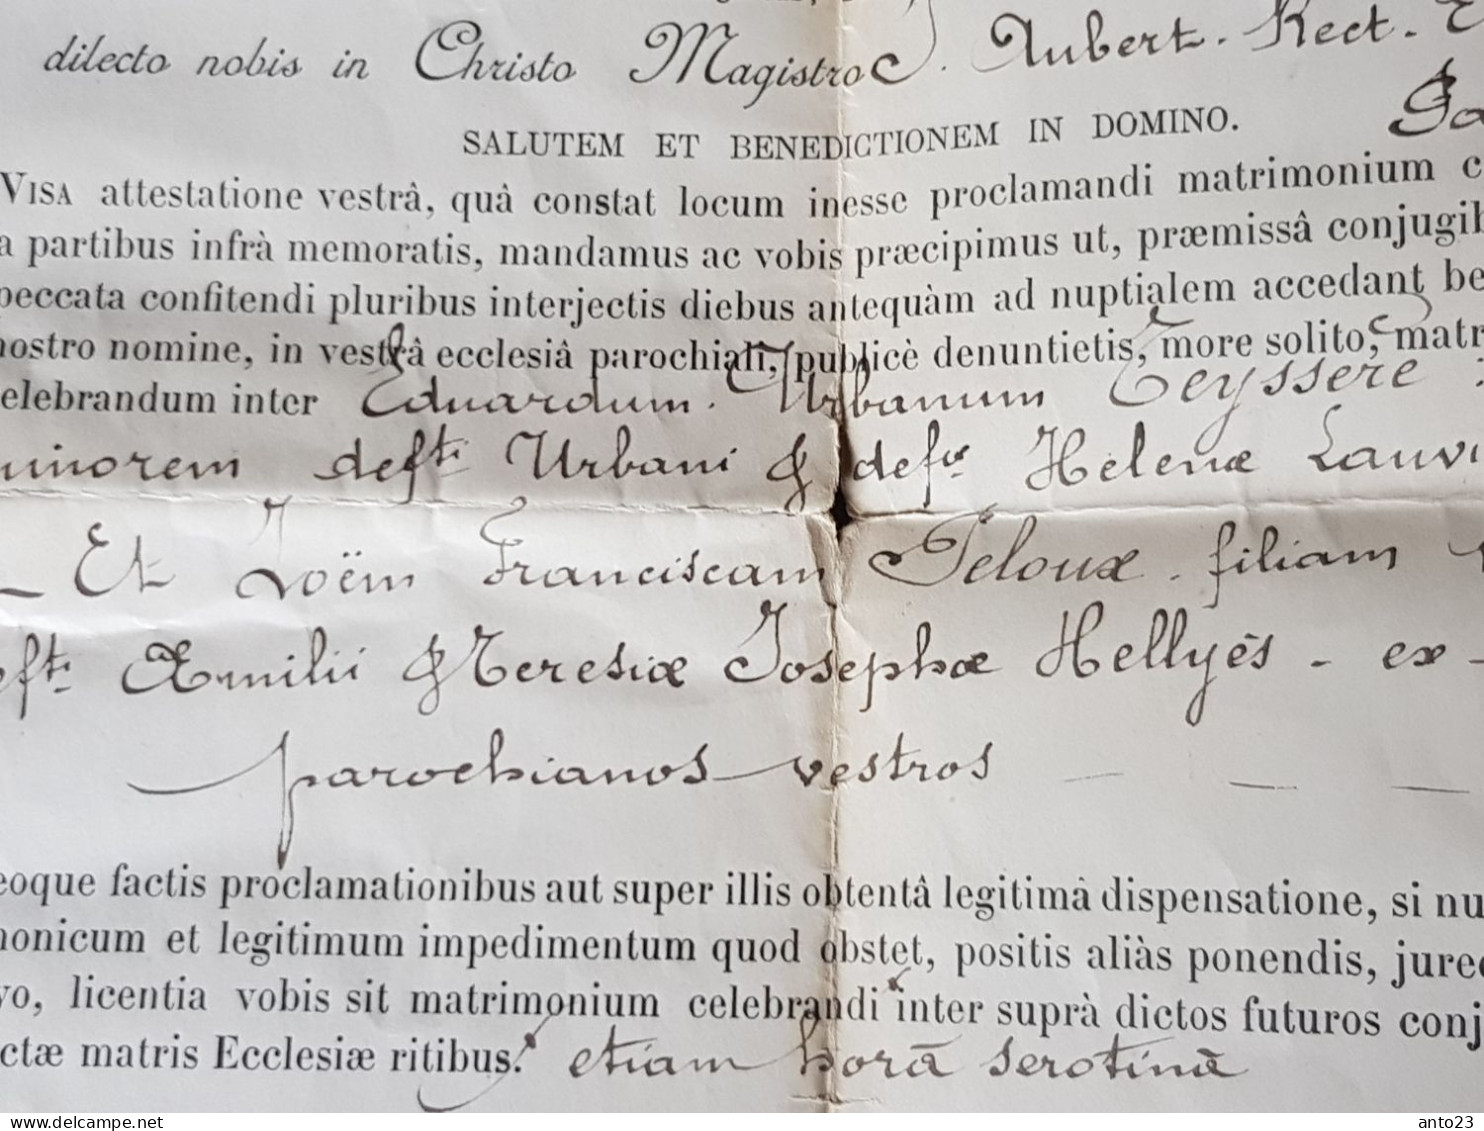 dilecto nobis in Christo Magistro J. Aubert. Rect. E
SALUTEM ET BENEDICTIONEM IN DOMINO.
VISA attestatione vestrâ, quâ constat locum inesse proclamandi matrimonium c
a partibus infrà memoratis, mandamus ac vobis præcipimus ut, præmissâ conjugib
peccata confitendi pluribus interjectis diebus antequàm ad nuptialem accedant be
nostro nomine, in vestrâ ecclesiâ parochiali, publicè denuntietis, more solito, matr
elebrandum inter Eduardum. Urbanum Teyssere
minorem defti Urbani & defæ Helenæ Lauvi
Et Zoëm Franciscam Peloux. filiam
efti Æmilii & Teresiæ Josephæ Hellyès - ex -
parochianos vestros
eoque factis proclamationibus aut super illis obtentâ legitimâ dispensatione, si nu
nonicum et legitimum impedimentum quod obstet, positis aliàs ponendis, jure
vo, licentia vobis sit matrimonium celebrandi inter suprà dictos futuros conj
ctæ matris Ecclesiæ ritibus. etiam horâ serotinâ
https://www.delcampe.net
anto23